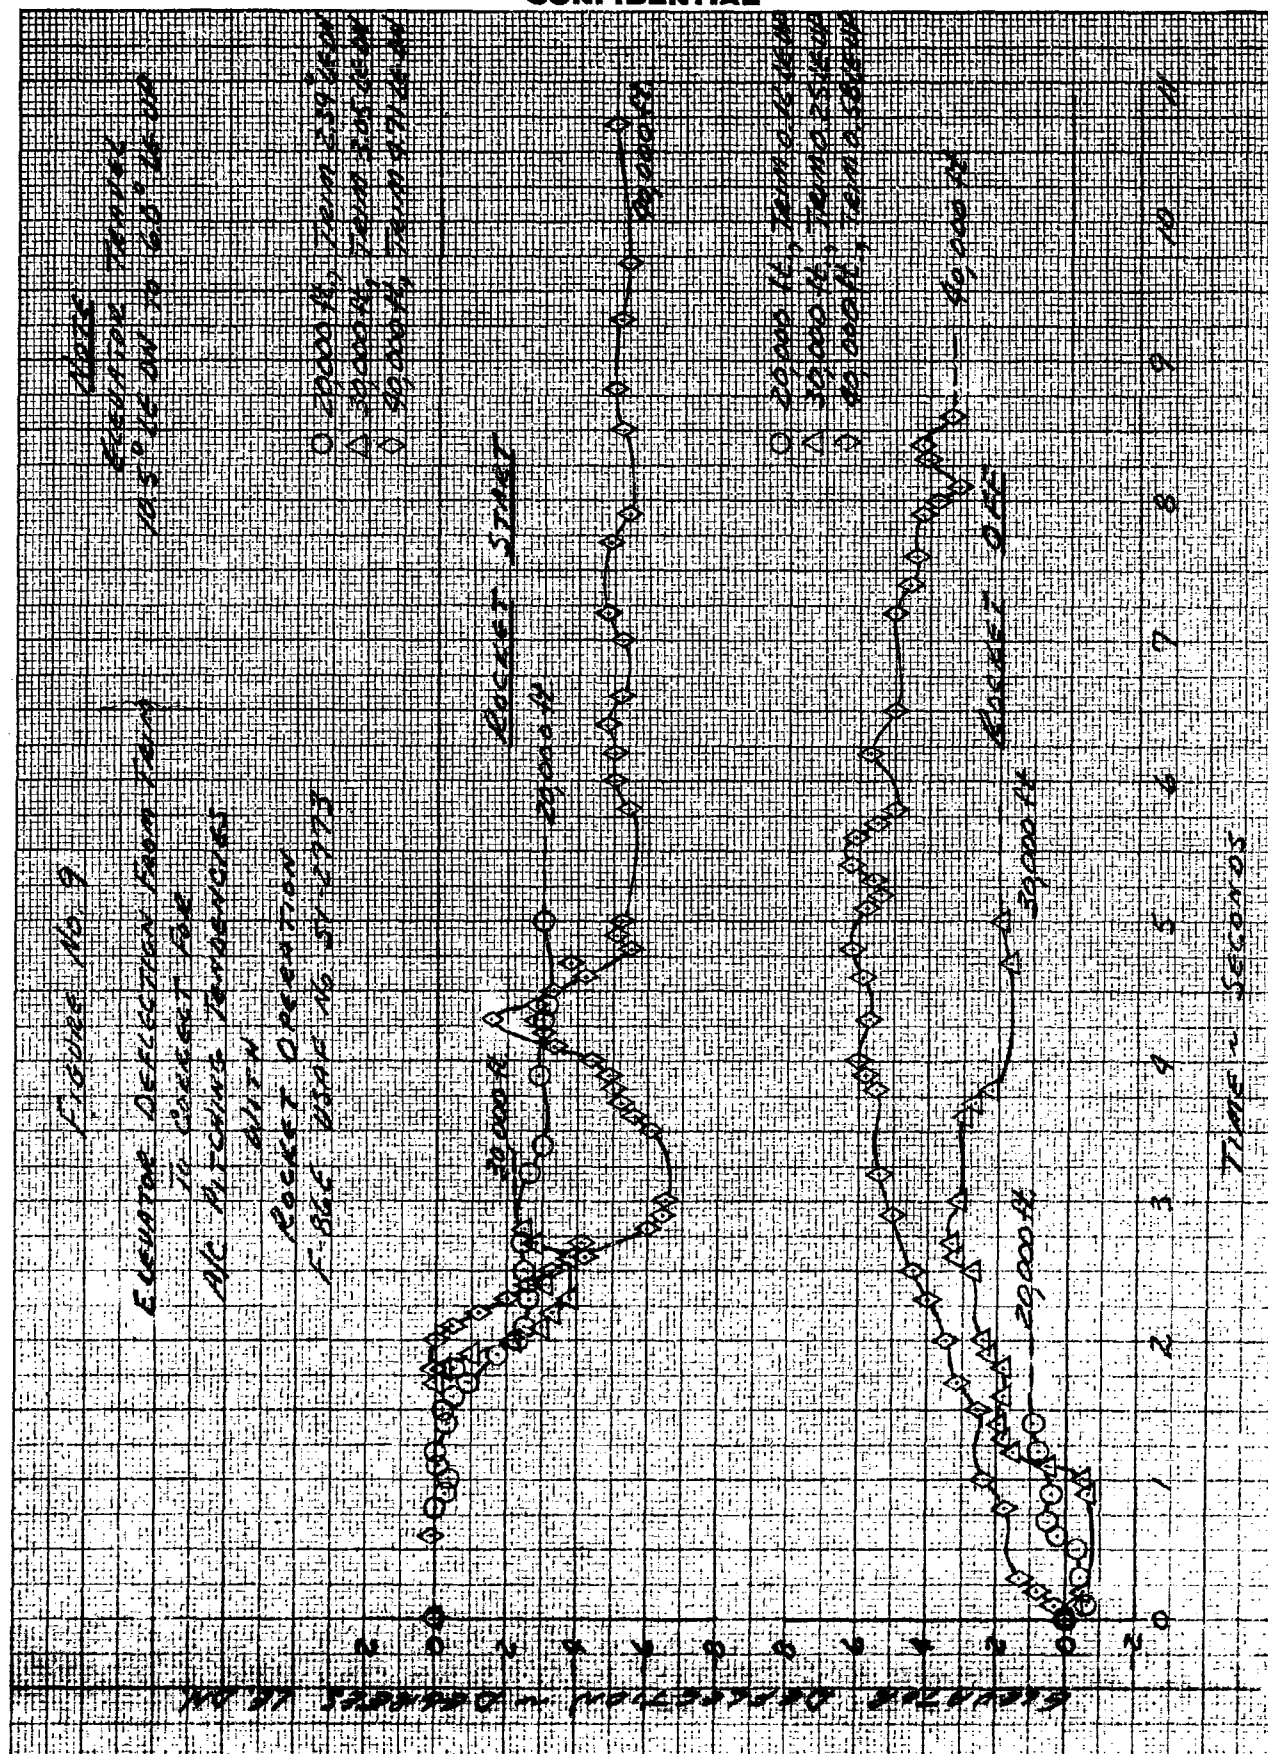 CONFIDENTIAL
FIGURE No. 9
ELEVATOR DEFLECTION FROM TRIM
TO CORRECT FOR
A/C PITCHING TENDENCIES
WITH
ROCKET OPERATION
F-86E USAF No 51-2773
NOTE
ELEVATOR TRAVEL
10.5° LE DN TO 6.0° LE UP
○ 20,000 ft., TRIM 2.39° LE DN
△ 30,000 ft., TRIM 3.05 LE DN
◇ 40,000 ft., TRIM 4.71 LE DN
ROCKET START
20,000 ft
30,000 ft.
40,000 ft.
○ 20,000 ft., TRIM 0.16 LE UP
△ 30,000 ft., TRIM 0.25 LE UP
◇ 40,000 ft., TRIM 0.58 LE UP
ROCKET OFF
20,000 ft
30,000 ft
40,000 ft
ELEVATOR DEFLECTION ~ DEGREES LE DN
2 0 2 4 6 8
6 4 2 0 2
0 1 2 3 4 5 6 7 8 9 10 11
TIME ~ SECONDS